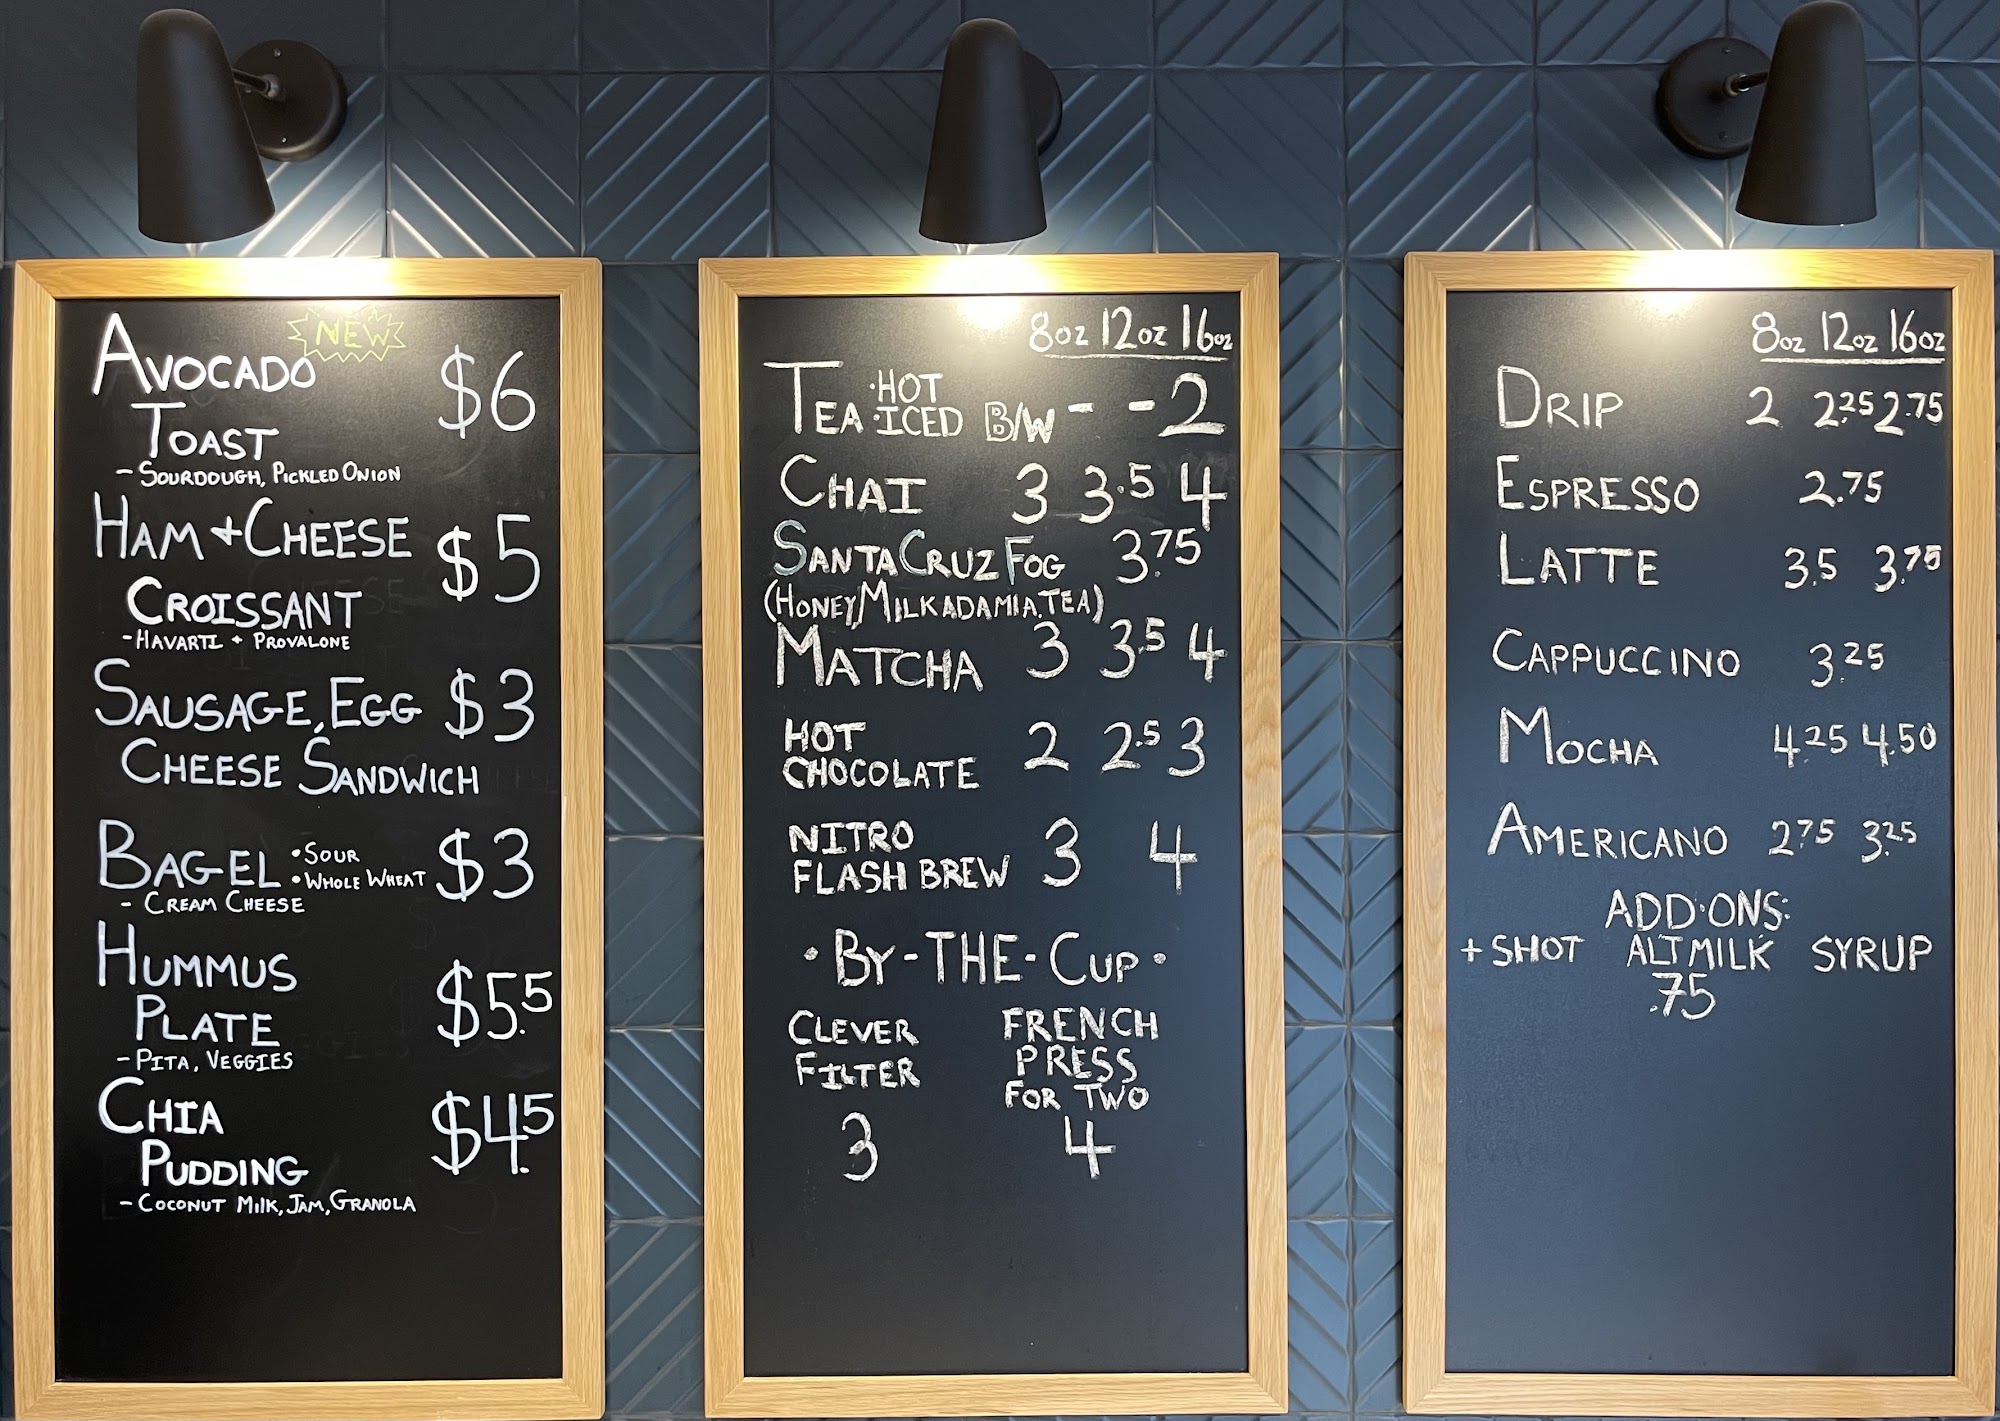 NEW
AVOCADO $6
TOAST
- SOURDOUGH, PICKLED ONION
HAM + CHEESE $5
CROISSANT
- HAVARTI + PROVALONE
SAUSAGE, EGG $3
CHEESE SANDWICH
BAGEL • SOUR • WHOLE WHEAT $3
- CREAM CHEESE
HUMMUS $5.5
PLATE
- PITA, VEGGIES
CHIA $4.5
PUDDING
- COCONUT MILK, JAM, GRANOLA
8oz 12oz 16oz
TEA • HOT • ICED B/W - - 2
CHAI 3 3.5 4
SANTA CRUZ FOG 3.75
(HONEY, MILKADAMIA, TEA)
MATCHA 3 3.5 4
HOT
CHOCOLATE 2 2.5 3
NITRO
FLASH BREW 3 4
• BY-THE-CUP •
CLEVER
FILTER
3
FRENCH
PRESS
FOR TWO
4
8oz 12oz 16oz
DRIP 2 2.25 2.75
ESPRESSO 2.75
LATTE 3.5 3.75
CAPPUCCINO 3.25
MOCHA 4.25 4.50
AMERICANO 2.75 3.25
ADD-ONS:
+ SHOT ALT MILK SYRUP
.75